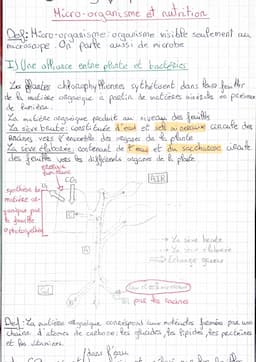 Micro-organisme et nutrition
Def: Micro-organisme: organisme visible seulement au
microscope. On parle aussi de microbe
I) Une alliance entre plante et bactéries
Les plantes chlorophylliennes synthétisent dans leurs feuilles
de la matière organique à partir de matières minérales en présence
de lumière.
La matière organique produite au niveau des feuilles
La sève brute: constituée d'eau et sels minéraux circule des
racines vers l'ensemble des organes de la plante
La sève élaborée: contenant de l'eau et du saccharose circule
des feuilles vers les différents organes de la plante
CO₂
AIR
synthèse
matière or-
ganique par
la feuille
photosynthèse
→ La sève brute
→ La sève élaborée
→ Échange gazeux
par les racines
Def: La matière organique correspond aux molécules formées par une
chaîne d'atomes de carbone: les glucides, les lipides, les protéines
et les vitamines.
dans l'eau